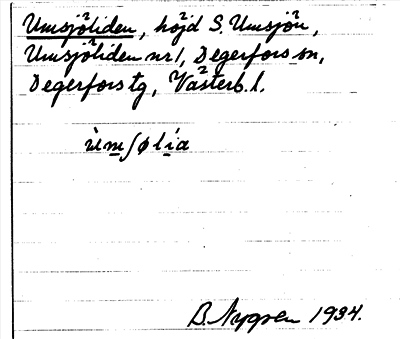 Umsjöliden, höjd S. Umsjön,
Umsjöliden nr 1, Degerfors sn,
Degerfors tg, Västerb. l.
ùmʃølía
B. Nygren 1934.